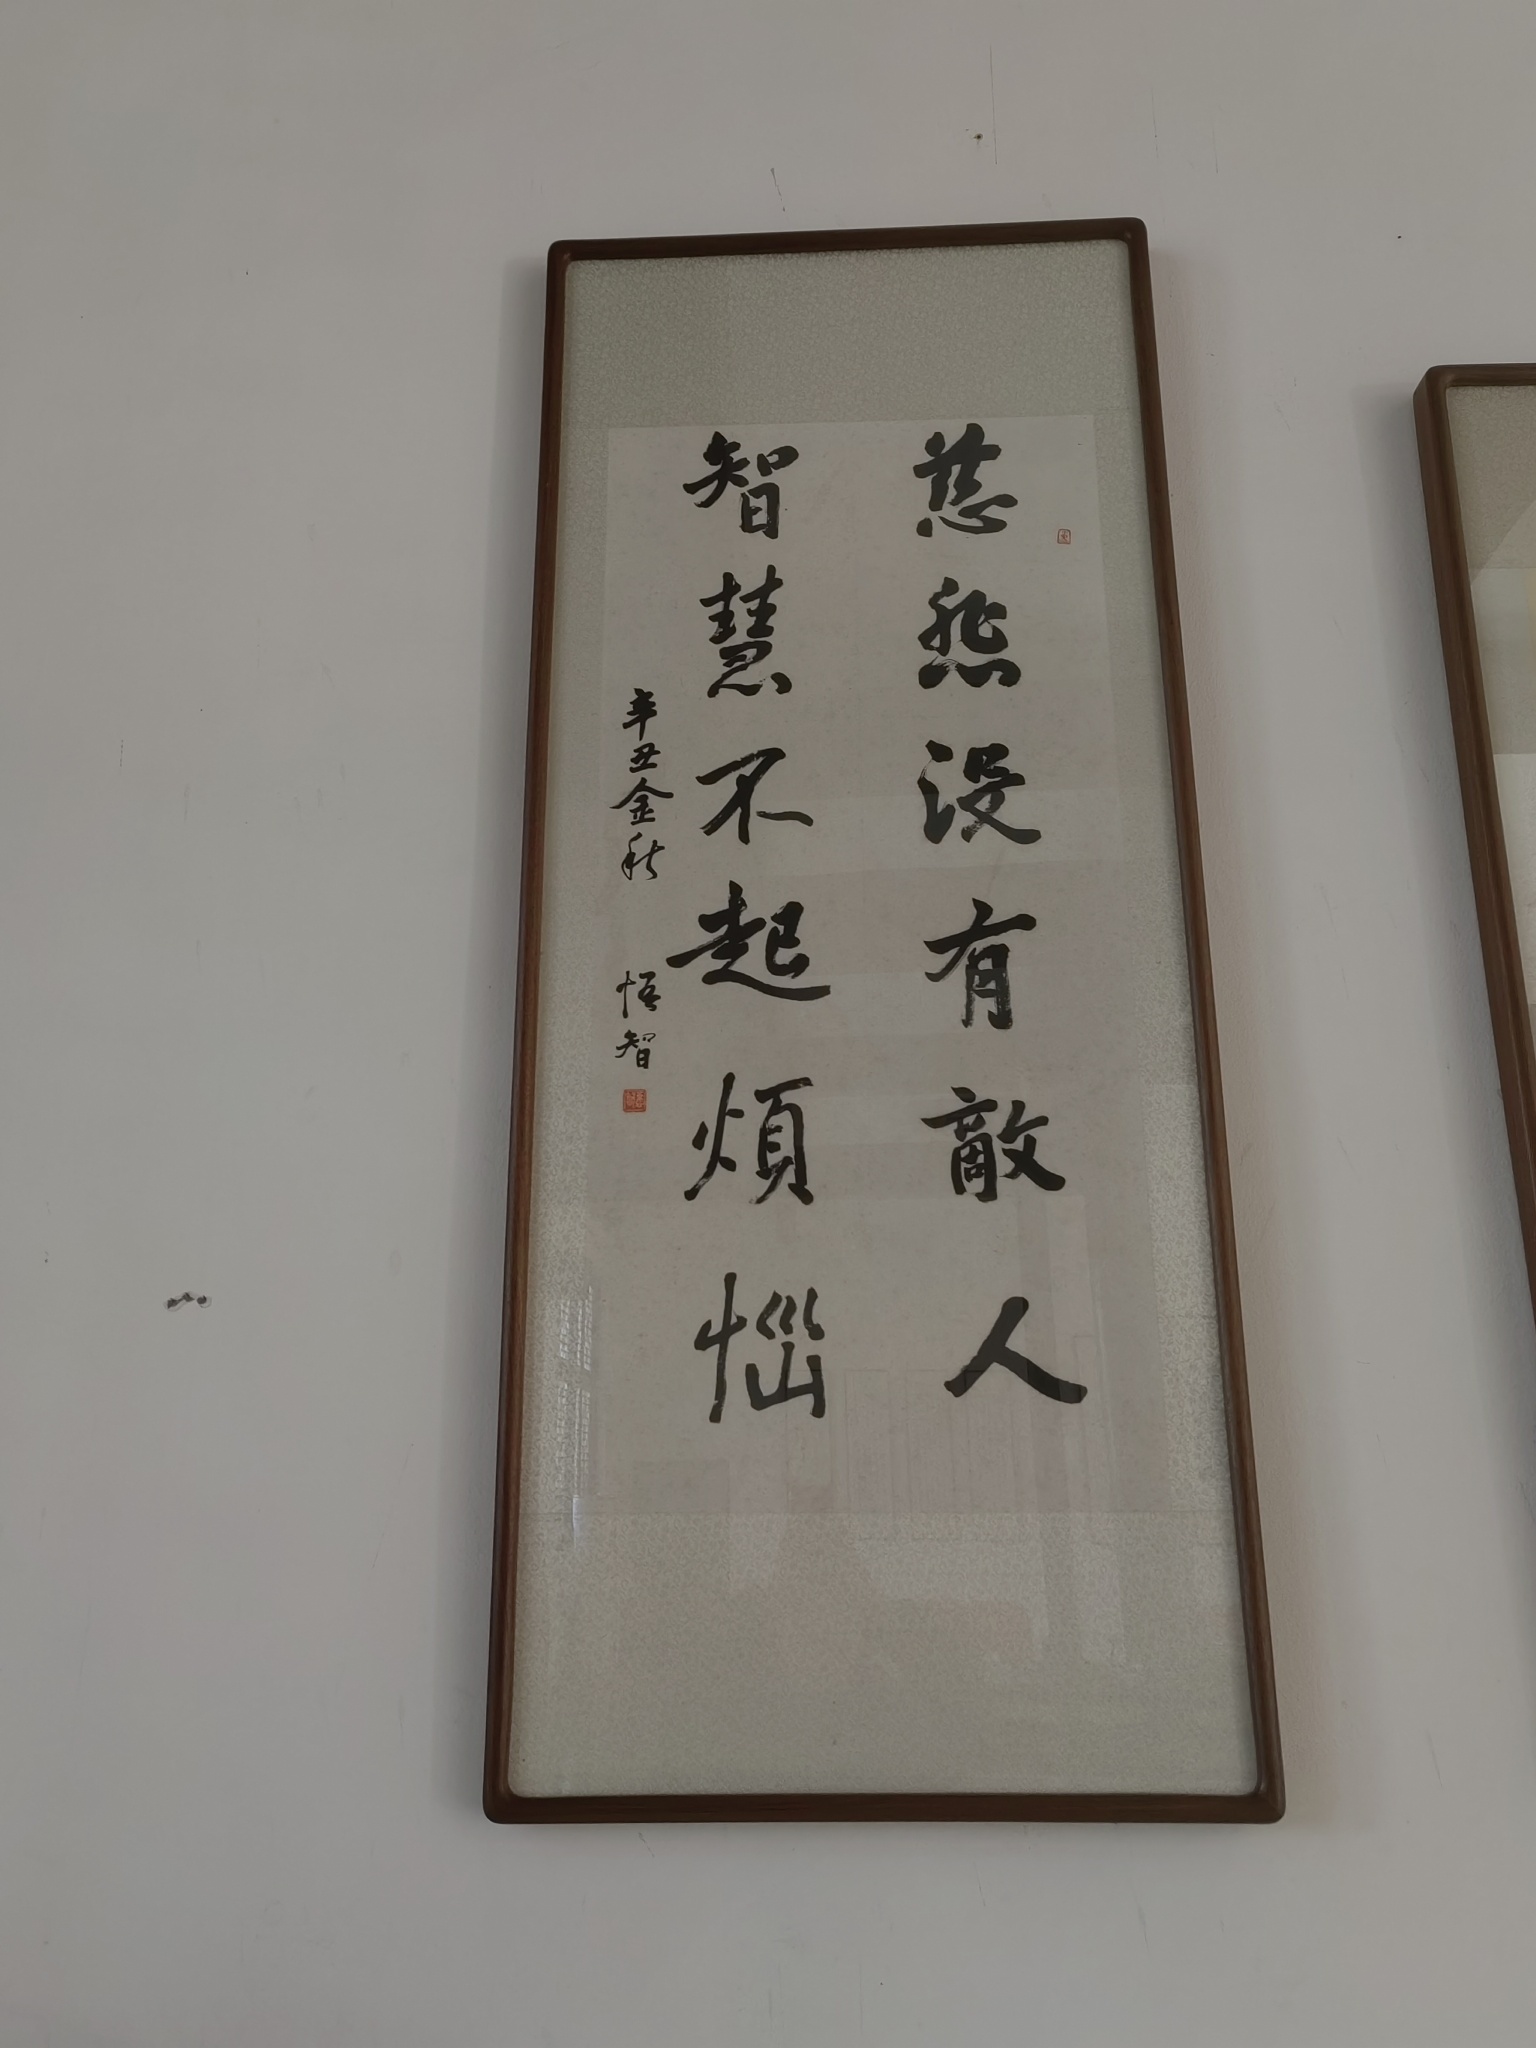 慈悲没有敵人
智慧不起煩惱
辛丑金秋 悟智